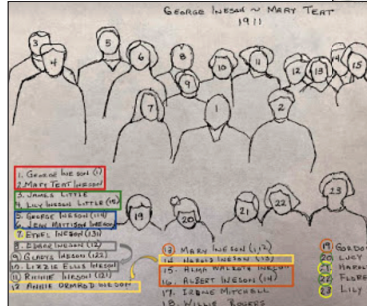 GEORGE INESON ~ MARY TEAT
1911
3
5
4
6
8
9
12
13
14
15
7
1
2
19
20
21
22
23
1. GEORGE INESON (1)
2. MARY TEAT INESON
3. JAMES LITTLE
4. LILY INESON LITTLE
5. GEORGE INESON
6. JENN INESON
7. ETHEL INESON (131)
8. EDGAR INESON (12)
9. GLADYS INESON (122)
10. LIZZIE ELLIS INESON
11. INESON (121)
12. ANNIE ORMARD INESON
13 MARY INESON (112)
14. HAROLD INESON (13)
15. ALMA INESON
16. ALBERT INESON (14)
17. IRENE MITCHELL
18. WILLIE ROGERS
19 GORDO
20 LUCY
21 HAROL
22 FLORE
23 LILY